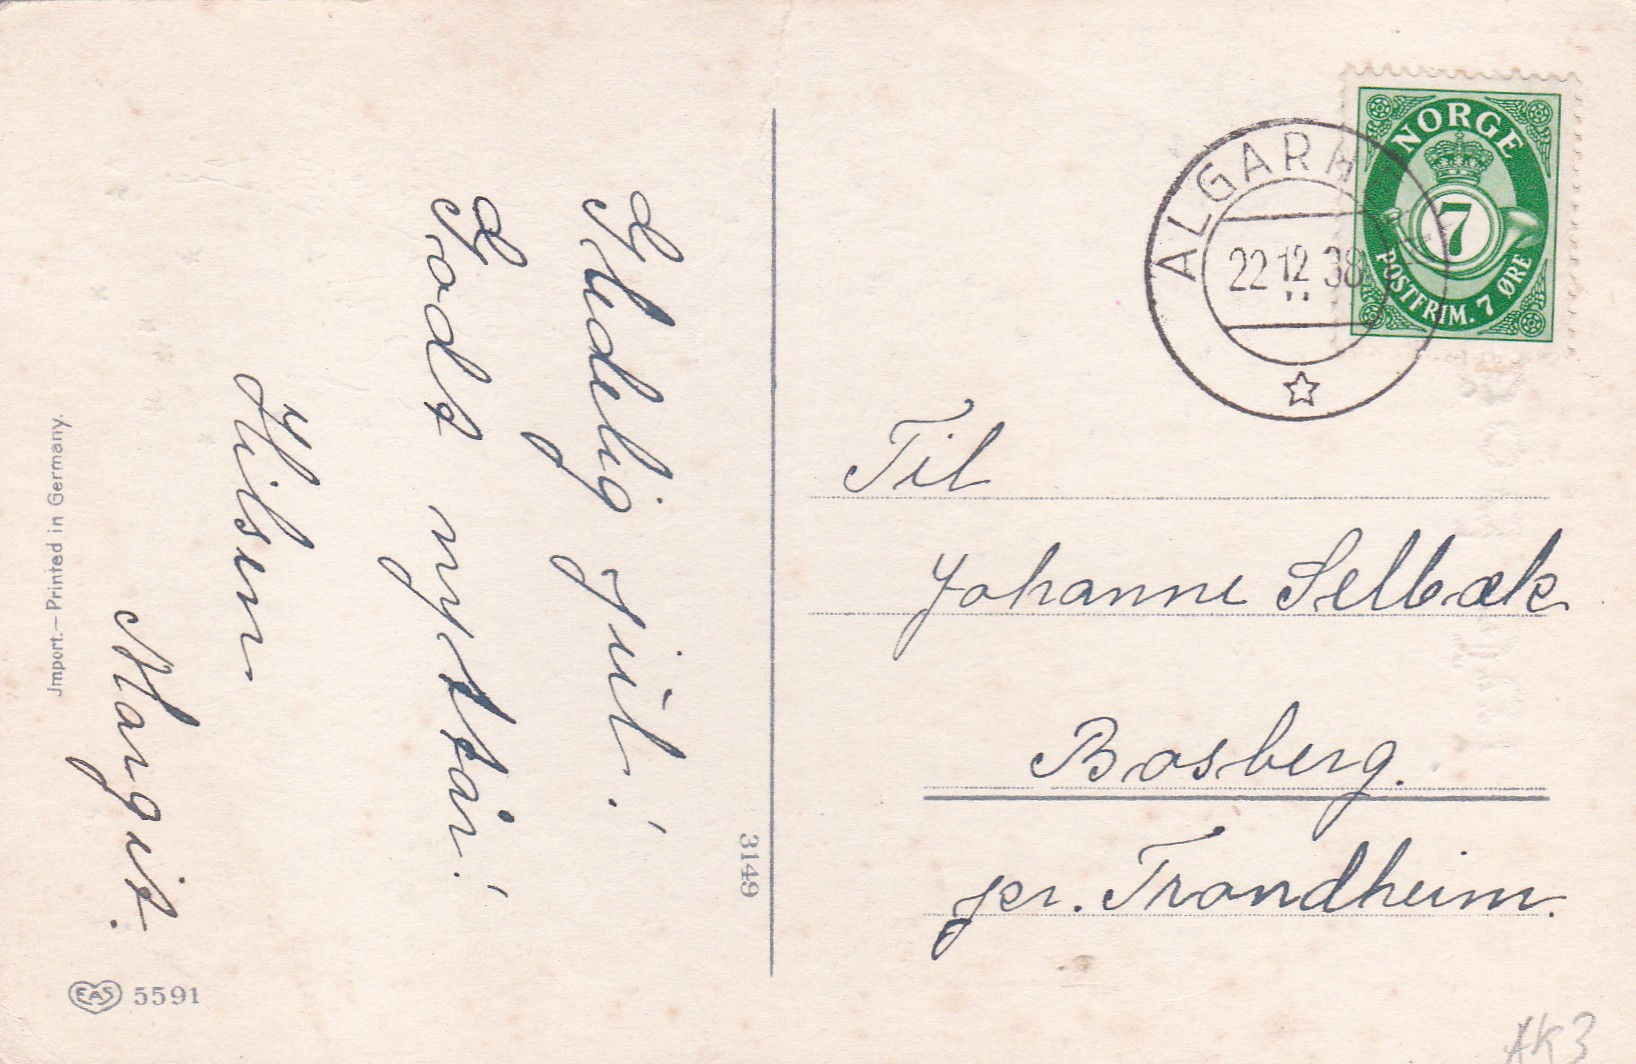 Gledelig jul!
Godt nyttår!
Hilsen
Margit.
Jmport.— Printed in Germany.
EAS 5591
3149
NORGE
7
POSTFRIM. 7 ØRE
22 12 38
Til
Johanne Selbæk
Bosberg.
pr. Trondheim.
AK3